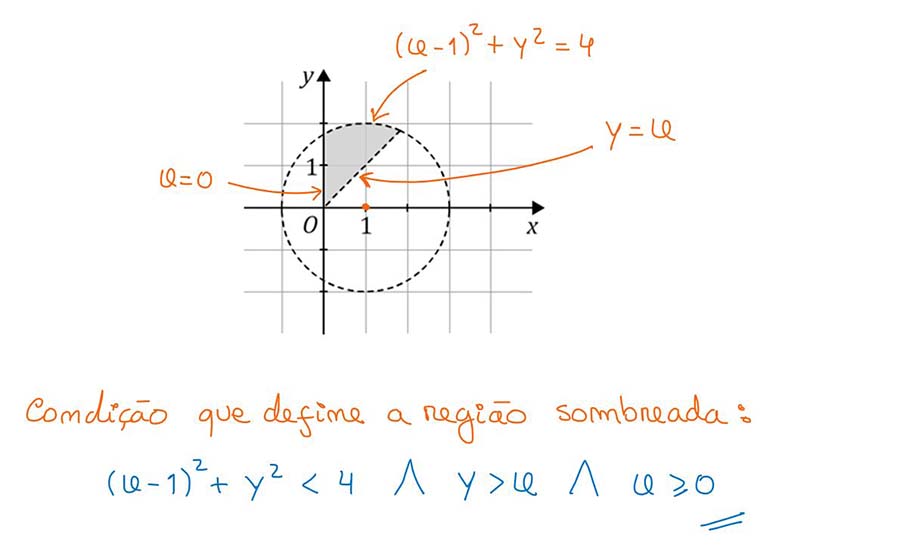 (x-1)² + y² = 4
y
y = x
1
x=0
O
1
x
Condição que define a região sombreada:
(x-1)² + y² < 4 ∧ y > x ∧ x ⩾ 0